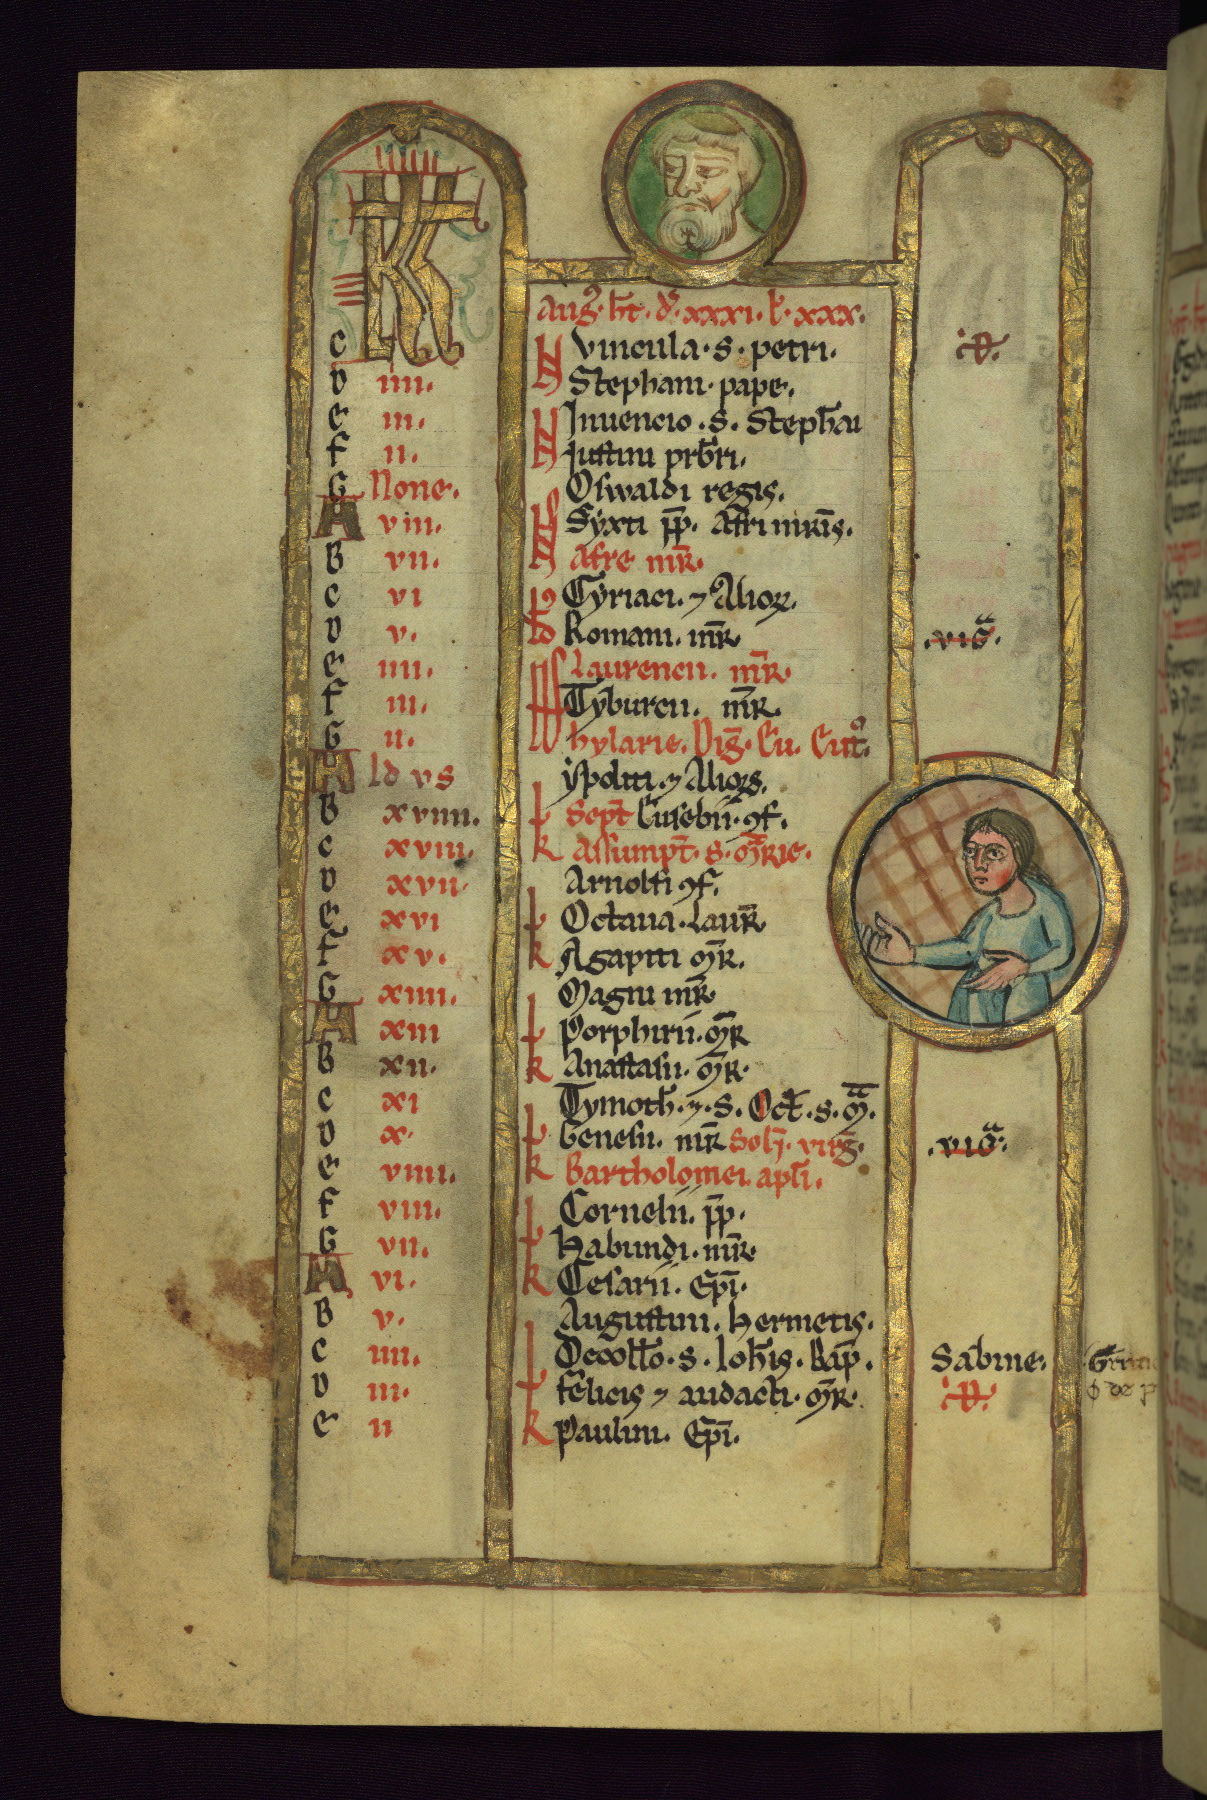 KL
Aug⁹. ht̄. d̄. xxxi. l̄. xxx.
c Vincula. s. petri. .D.
D iiii. Stephani. pape.
e iii. Inuencio. s. Steph̄ai
f ii. Iustini prb̄ri.
G None. Oswaldi regis.
A viii. Syxti pp̄. Afri mr̄is.
B vii. Afre mr̄.
c vi Cyriaci. ⁊ Alioꝝ.
D v. Romani. mr̄ .viā.
e iiii. Laurencii. mr̄.
f iii. Tyburcii. mr̄.
G ii. hylarie. Dig̅. Eu. Eut⁹.
A Idus ypoliti. ⁊ Alioꝝ.
B xviiii. Sept̄ Eusebii. ꝯf.
c xviii. Assumpt̄. s. M̄Rie.
D xvii. Arnolfi ꝯf.
e xvi Octaua. Laur̄
f xv. Agapiti M̄R.
G xiiii. Magni mr̄
A xiii Porphirii. M̄R
B xii. Anastasii. M̄R.
c xi Tymoth̄. ⁊. S. Oct̄. s. M̄.
D x. Genesii. mr̄ Sol̄. virḡ. .viā.
e viiii. Bartholomei. apl̄i.
f viii. Cornelii. pp̄.
G vii. Habundi. mr̄
A vi. Cesarii. Ep̄i.
B v. Augustini. Hermetis.
c iiii. Decoll̄o. s. Ioh̄is. Bap̄. Sabine.
D iii. felicis ⁊ audacti. M̄R. .D.
e ii Paulini. Ep̄i.